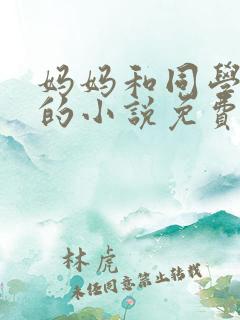 妈妈和同學
的小说免費
林虎
未经同意禁止转载